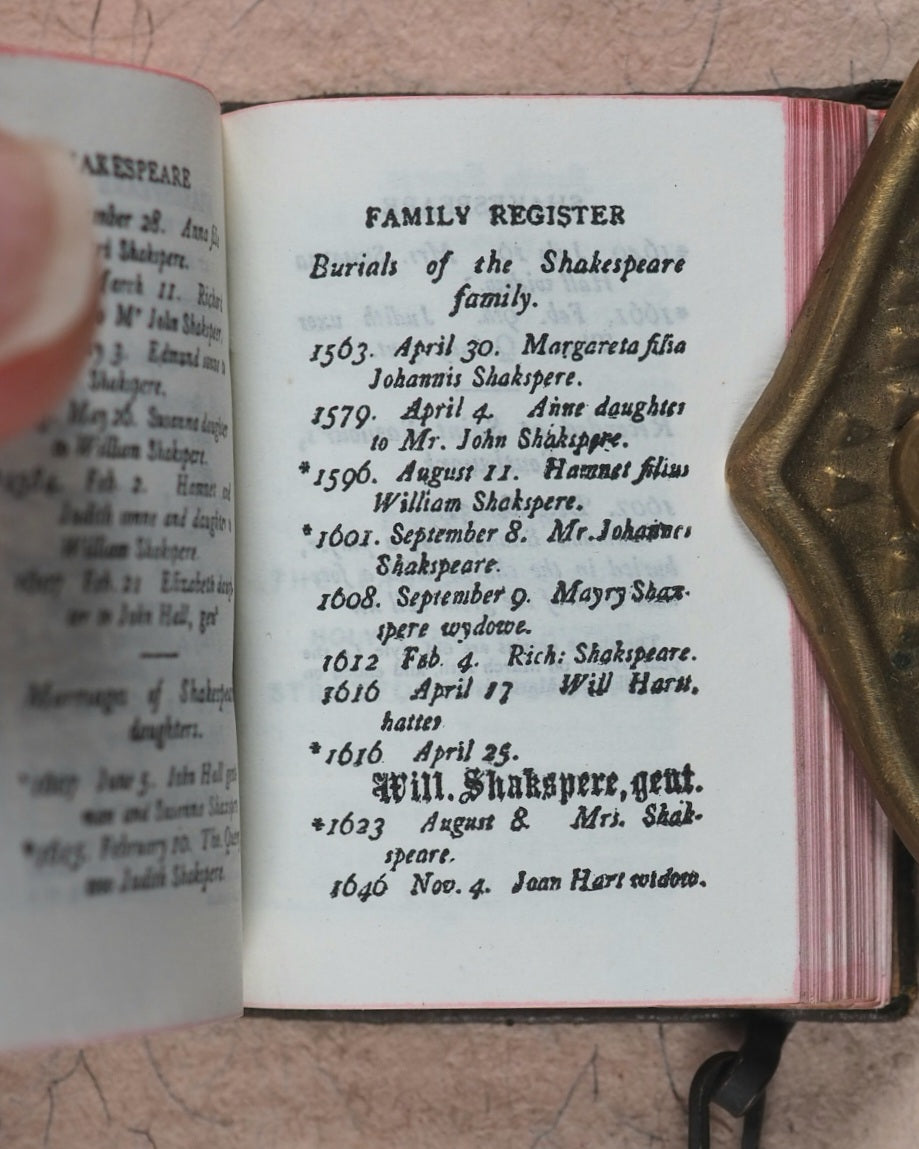 SHAKESPEARE
28. Anna
Shakspere.
March 11. Richard
to Mr John Shakspere,
3. Edmund sonne to
Shakspere.
May 26. Susanna daughter
to William Shakspere.
Feb. 2. Hamnet and
Judith sonne and daughter
William Shakspere.
Feb. 21 Elizabeth
to John Hall, gent
Marriages of Shakespeare
daughters.
June 5. John Hall
and Susanna
February 10. Tho.
Judith Shakspere.
FAMILY REGISTER
Burials of the Shakespeare
family.
1563. April 30. Margareta filia
Johannis Shakspere.
1579. April 4. Anne daughter
to Mr. John Shakspere.
*1596. August 11. Hamnet filius
William Shakspere.
*1601. September 8. Mr. Johannes
Shakspeare.
1608. September 9. Mayry Shax-
spere wydowe.
1612 Feb. 4. Rich: Shakspeare.
1616 April 17 Will Hart,
hatter
*1616 April 25.
Will. Shakspere, gent.
*1623 August 8. Mrs. Shak-
speare.
1646 Nov. 4. Joan Hart widow.